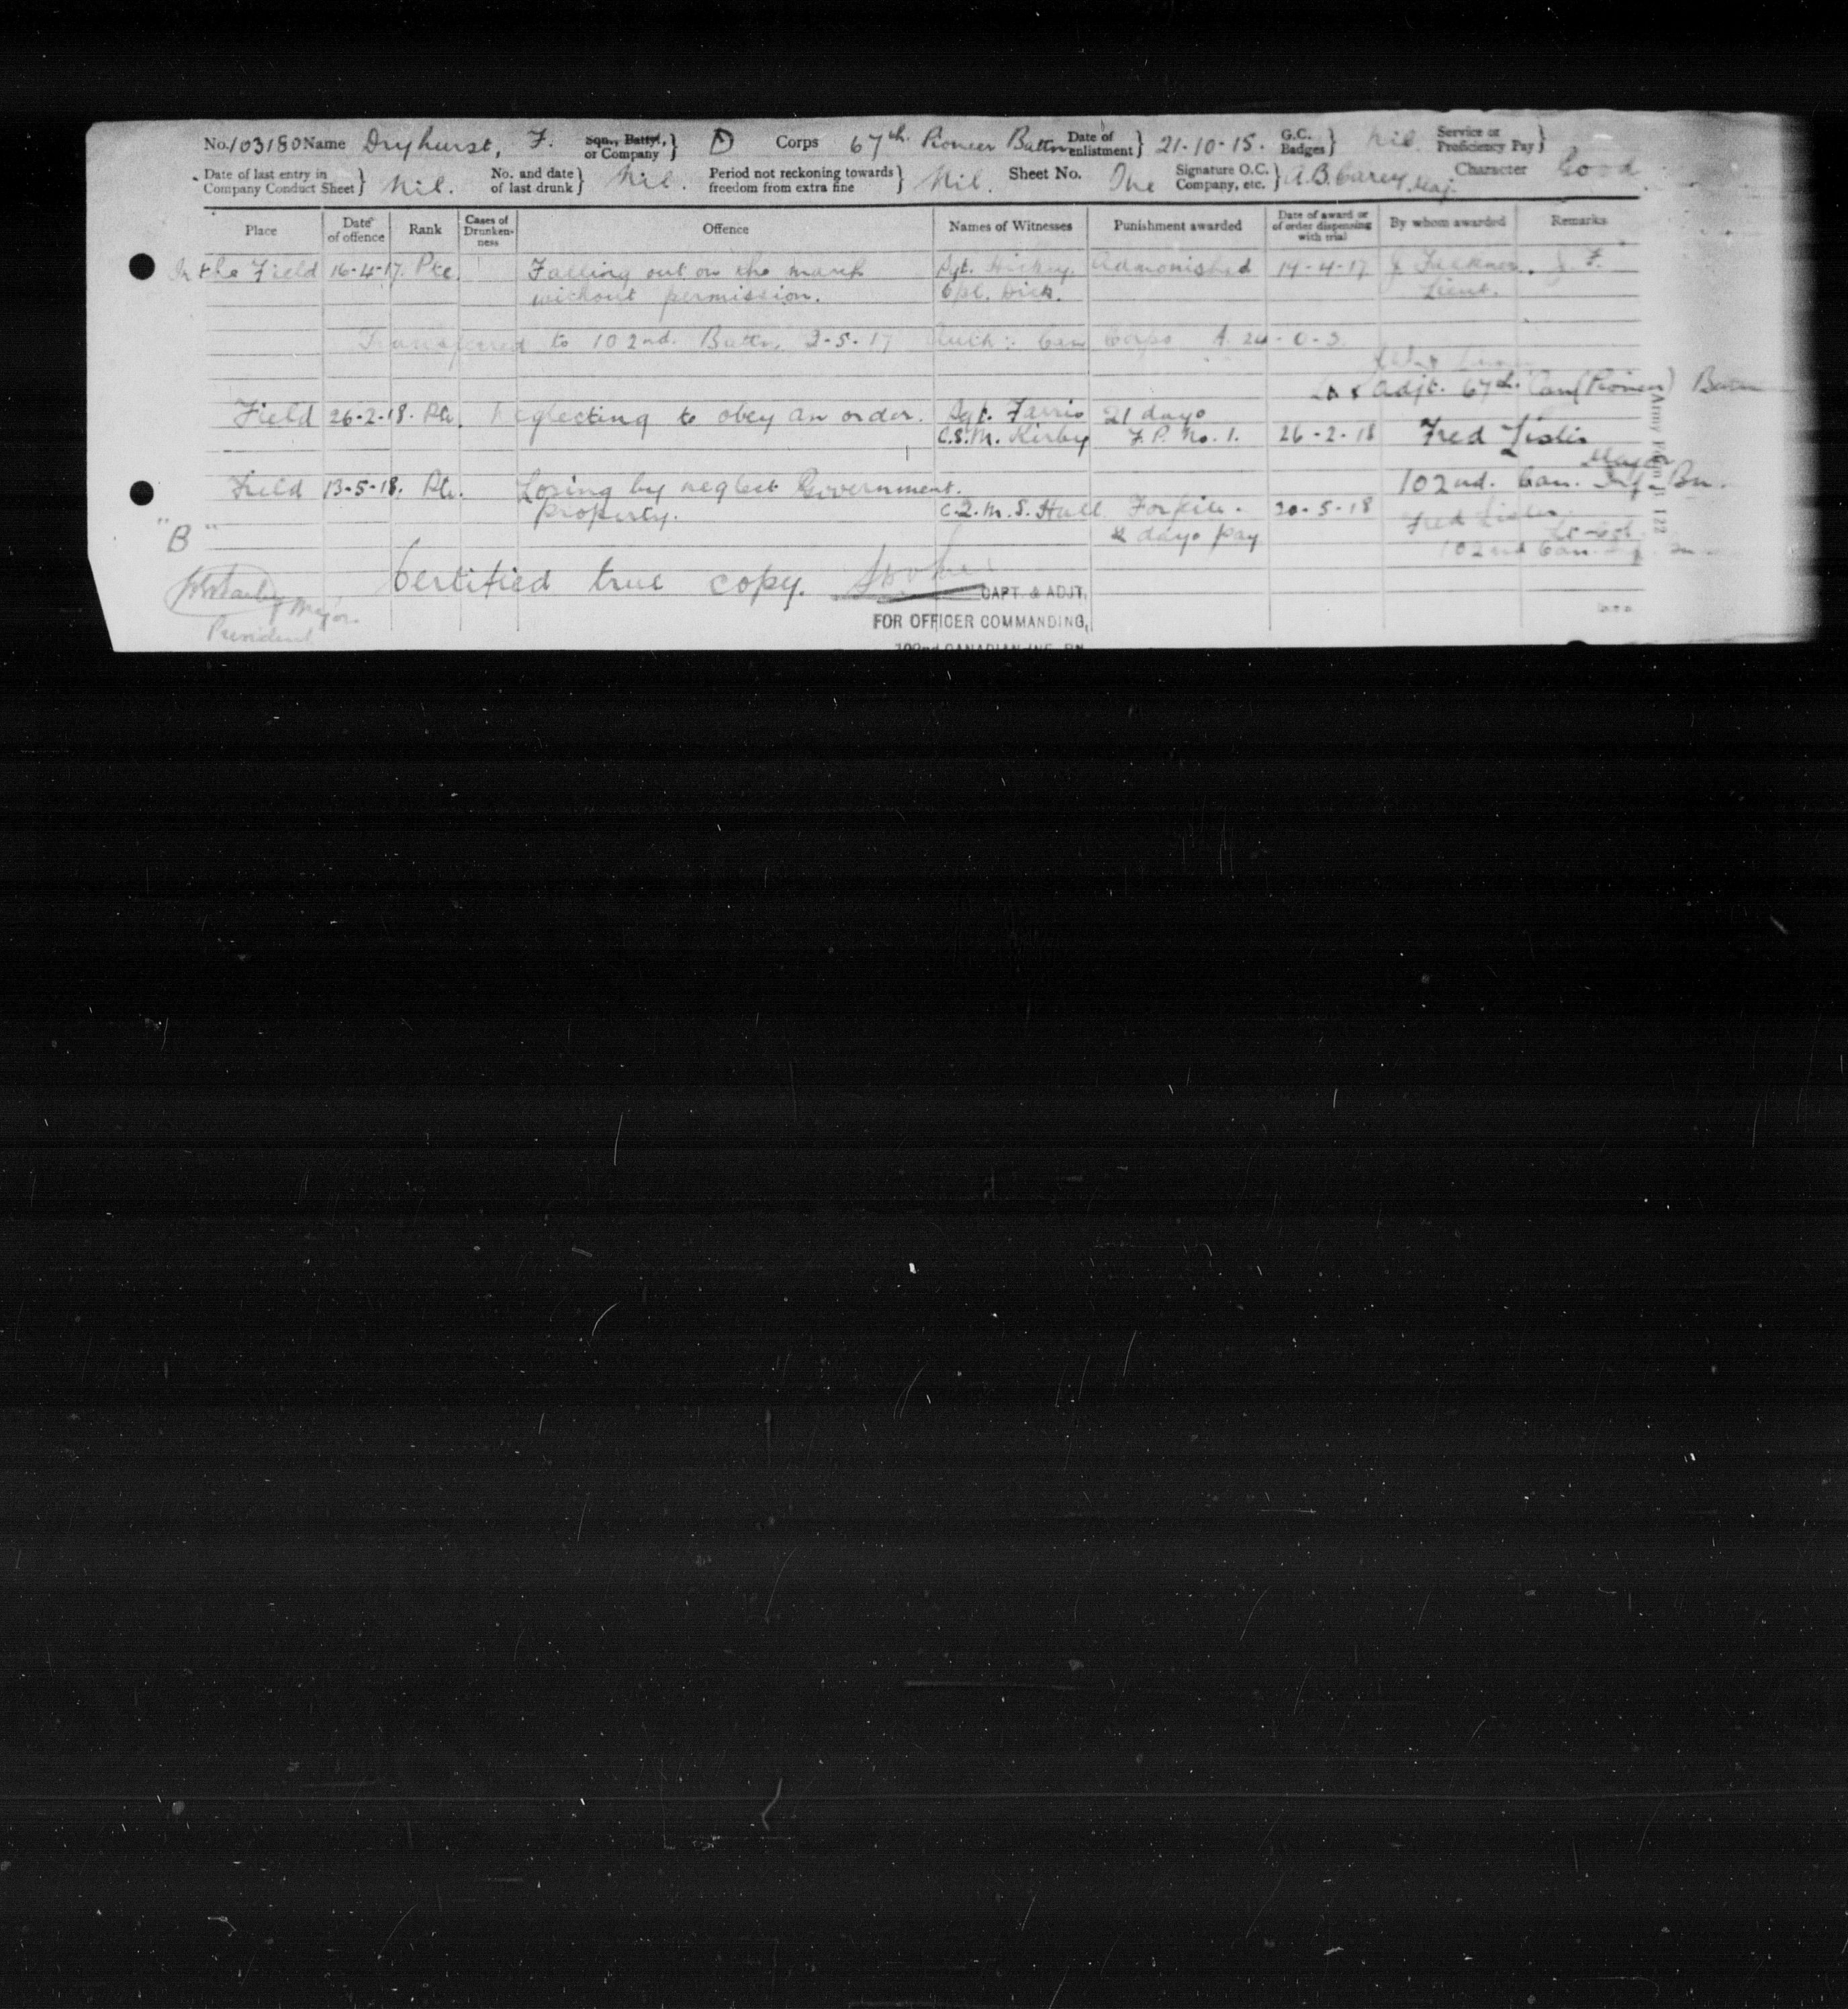 No. 103180 Name Dryhurst, F. Sqn., Batty., or Company } D Corps 67th. Pioneer Battn Date of enlistment } 21-10-15. G.C. Badges } Nil. Service or Proficiency Pay }
Date of last entry in Company Conduct Sheet } Nil. No. and date of last drunk } Nil. Period not reckoning towards freedom from extra fine } Nil. Sheet No. One Signature O.C. Company, etc. } A.B. Carey Maj. Character Good
Place Date of offence Rank Cases of Drunkenness Offence Names of Witnesses Punishment awarded Date of award or of order dispensing with trial By whom awarded Remarks
In the Field 16-4-17. Pte. Falling out on the march Sgt. Hickey. Admonished 19-4-17 J. Faulkner. J. F.
without permission. Cpl. Dick. Lieut.
Transferred to 102nd. Battn. 3-5-17 Auth: Can Corps A. 24-0-3
Adjt. 67th. Can (Pioneer) Battn
Field 26-2-18. Pte. Neglecting to obey an order. Sgt. Farris 21 days
C.S.M. Kirby F.P. No. 1. 26-2-18 Fred Lister
Major
Field 13-5-18. Pte. Losing by neglect Government 102nd. Can. Inf. Bn.
property. C.Q.M.S. Hall Forfeits 20-5-18 Fred Lister
days pay Lt-Col.
102nd Can.
"B"
Certified true copy.
CAPT. & ADJT.
Major
President
FOR OFFICER COMMANDING,
102nd CANADIAN INF. BN.
Army Form B 122